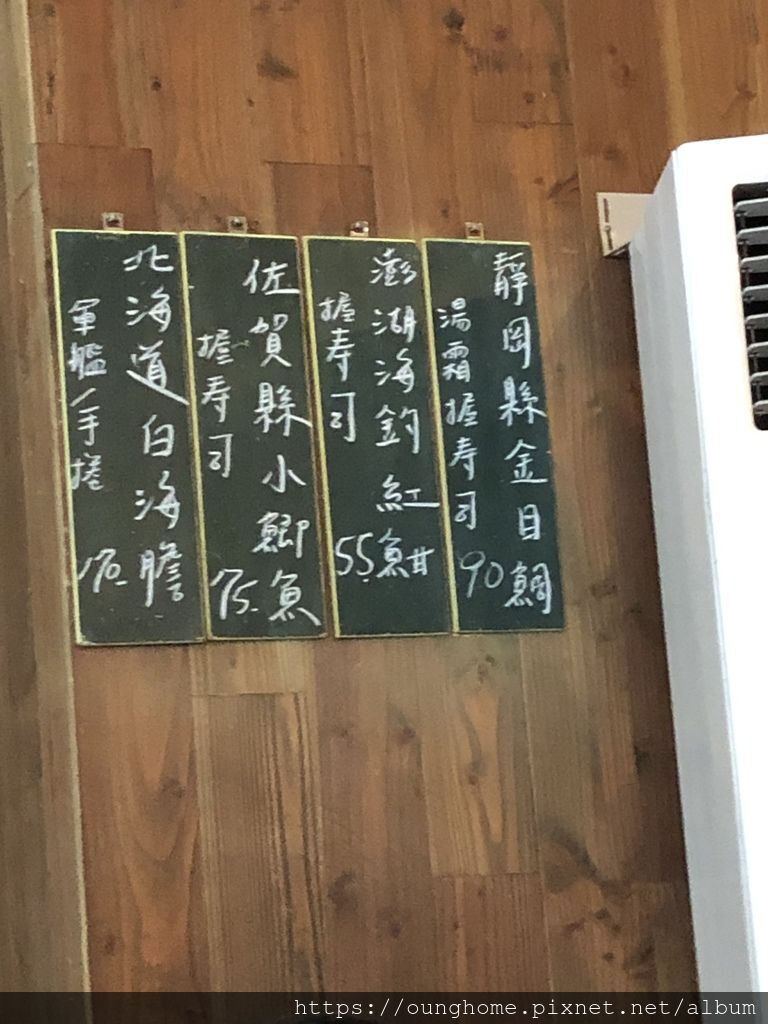 靜岡縣金目鯛
湯霜握寿司
90
澎湖海釣紅魽
握寿司
55.
佐賀縣小鯽魚
握寿司
75.
北海道白海膽
軍艦/手捲
170.
https://ounghome.pixnet.net/album